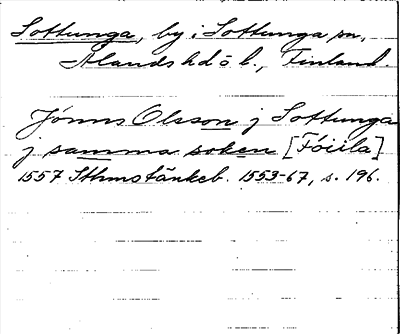 Sottunga, by i Sottunga sn,
Ålands hd o l., Finland.
Jónns Olsson j Sottunga
j samma soken [Föiila]
1557 Sthmstänkeb. 1553-67, s. 196.